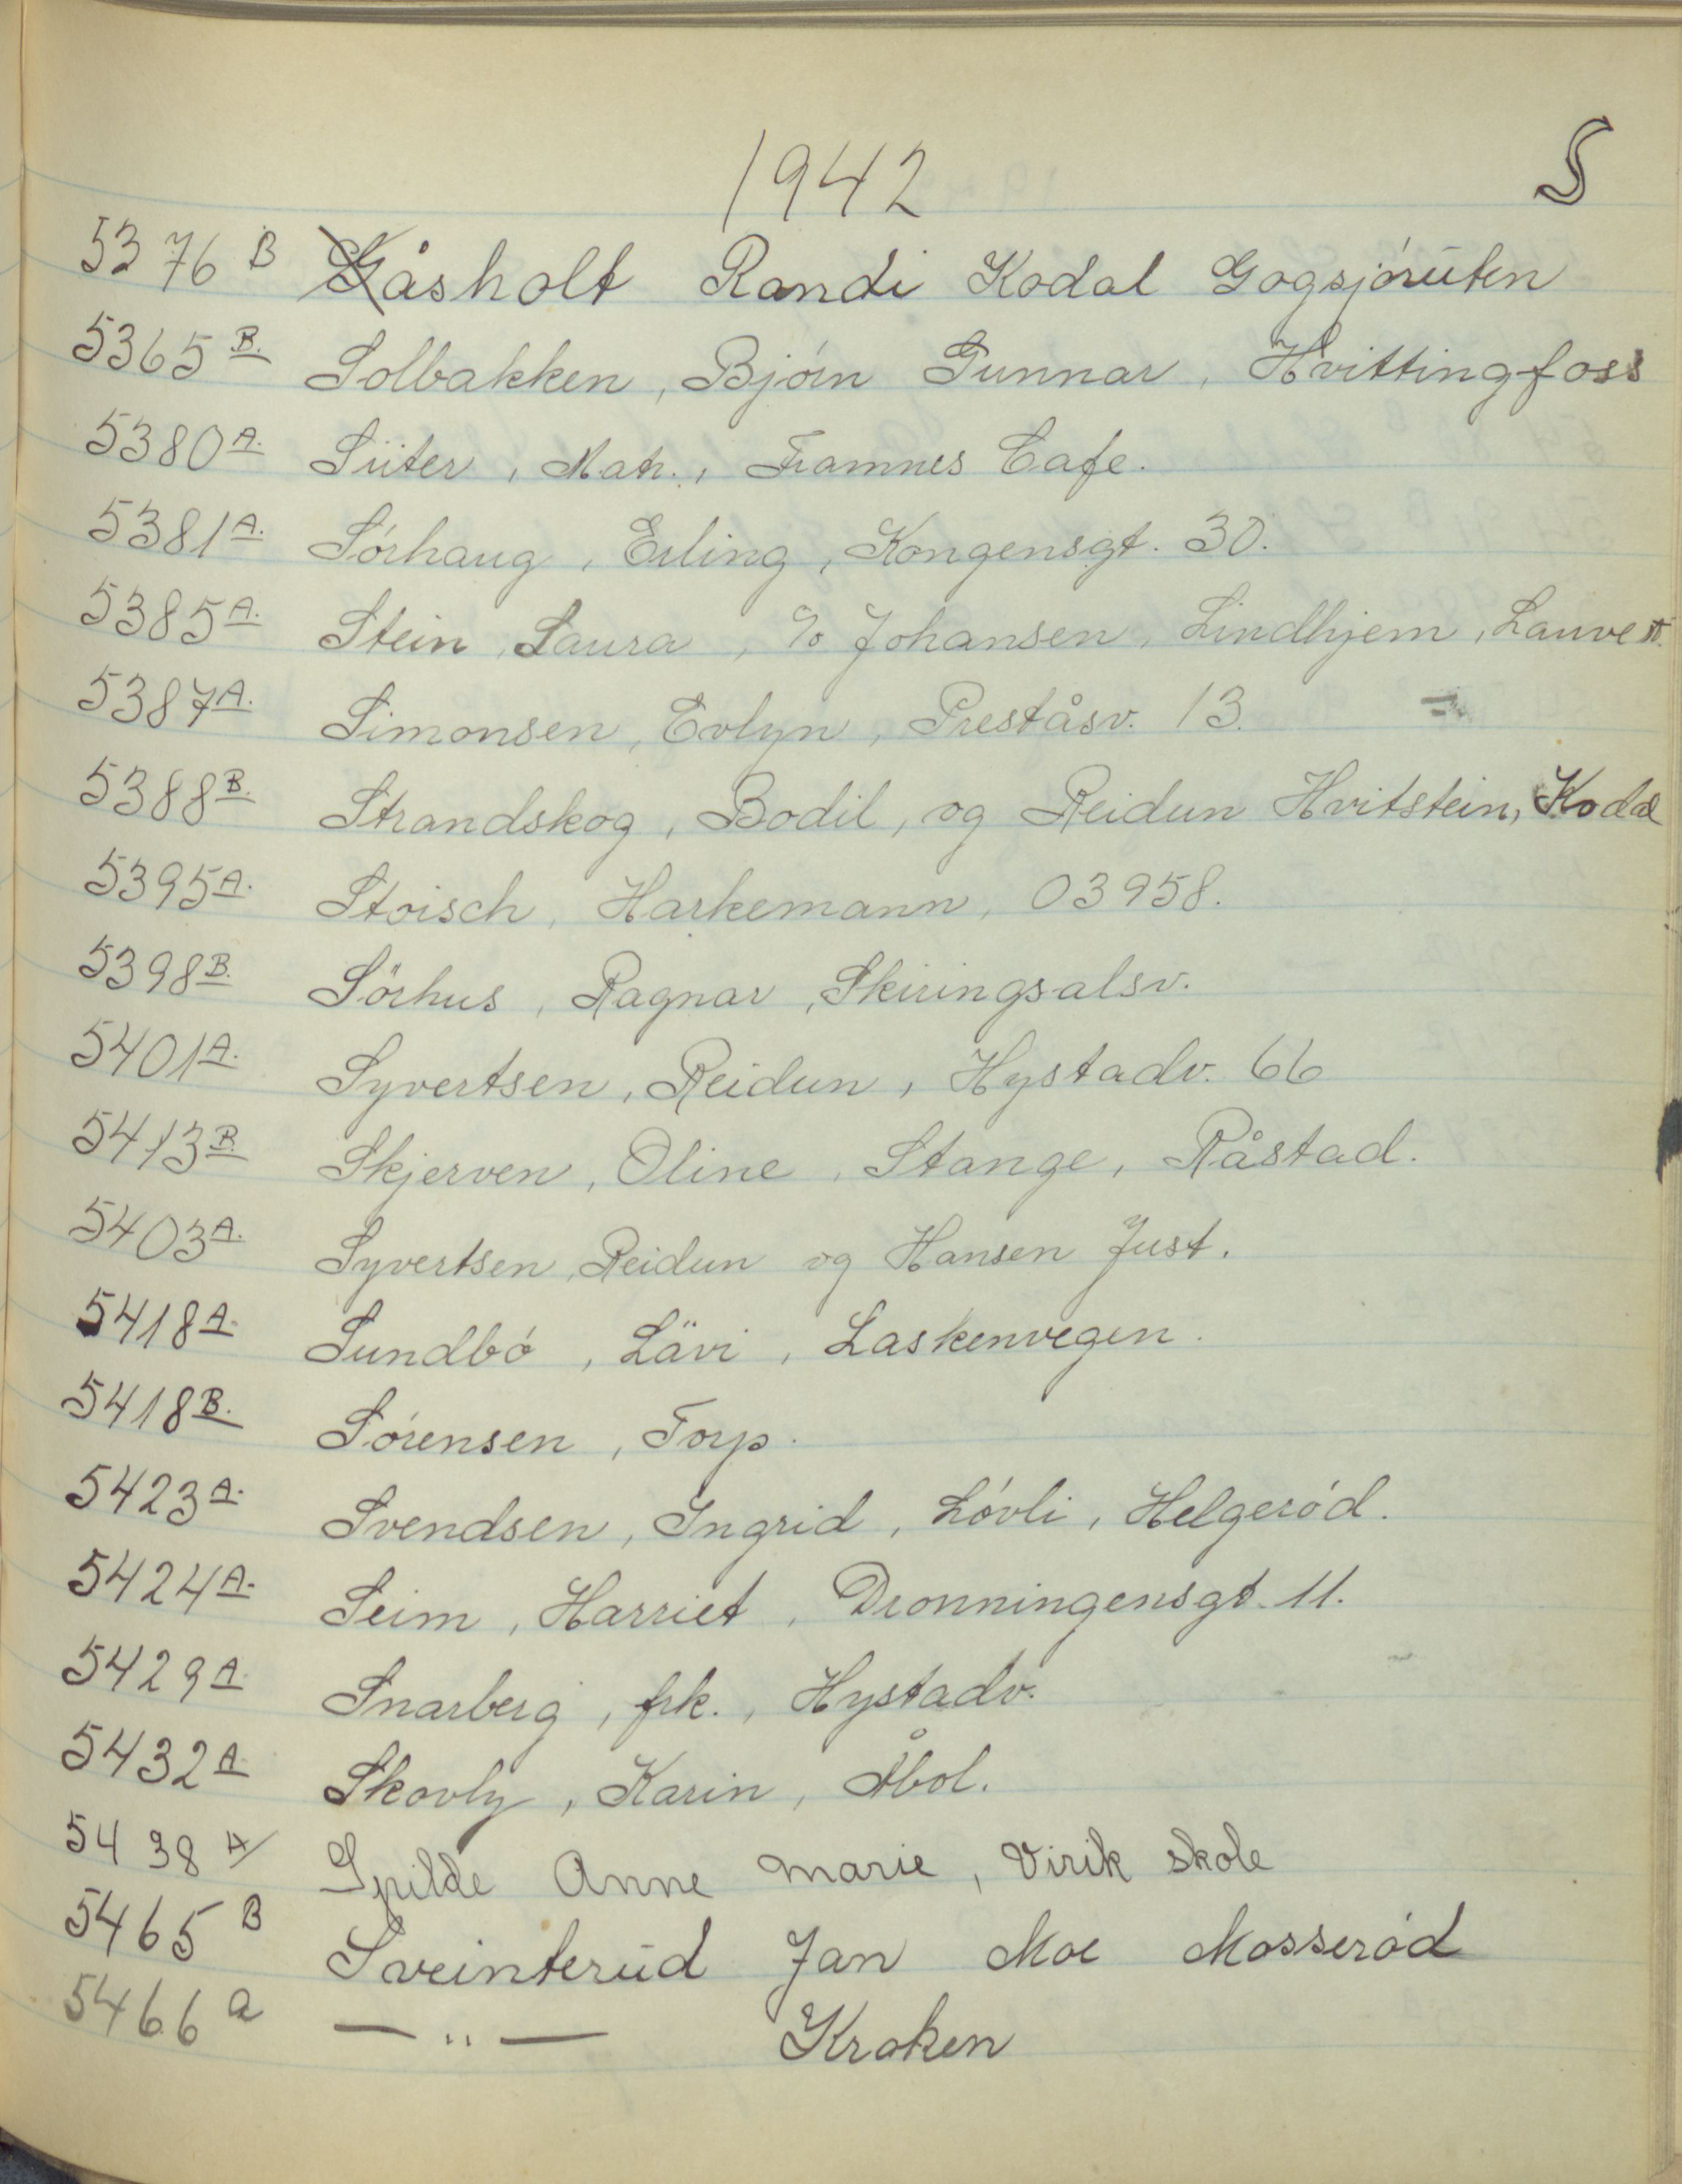 1942 S
5376 B Gåsholt Randi Kodal Gogsjórūten
5365 B. Solbakken, Bjórn Gunnar, Hvittingfoss
5380 A. Süter, Matr., Framnes Cafe.
5381 A. Sórhaug, Erling, Kongensgt. 30.
5385 A. Stein, Laura, % Johansen, Lindhjem, Lauve st.
5387 A. Simonsen, Evlyn, Preståsv. 13.
5388 B. Strandskog, Bodil, og Reidun Hvitstein, Kodal
5395 A. Stoisch, Harkemann, 03958.
5398 B. Sörhus, Ragnar, Skiringsalsv.
5401 A. Syvertsen, Reidun, Hystadv. 66
5413 B. Skjerven, Oline, Stange, Råstad.
5403 A. Syvertsen, Reidun og Hansen Just.
5418 A. Sundbó, Lävi, Laskenvegen.
5418 B. Sórensen, Torp.
5423 A. Svendsen, Ingrid, Lóvli, Helgeród.
5424 A. Seim, Harriet, Dronningensgt. 11.
5429 A. Snarberg, frk., Hystadv.
5432 A. Skovly, Karin, Åbol.
5438 A Spilde Anne Marie, Virik skole
5465 B Sveinterūd Jan Moe Mosseród
5466 a — " — Kroken